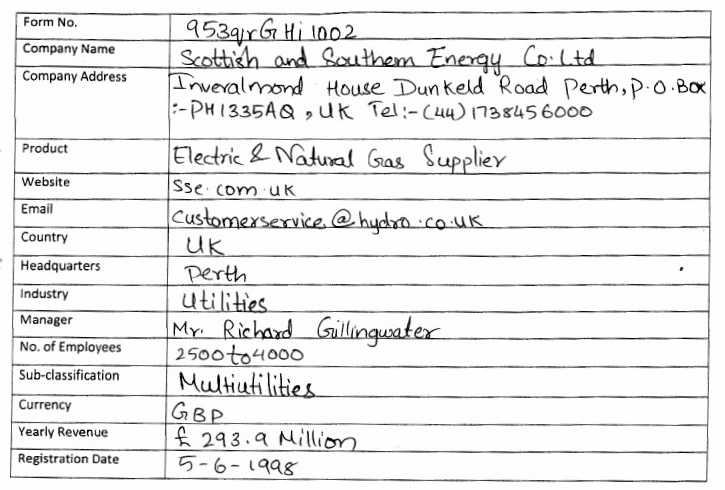 Form No. 953qrGHi1002
Company Name Scottish and Southern Energy Co. Ltd
Company Address Inveralmond House Dunkeld Road Perth, P.O.Box
:-PH1335AQ, UK Tel:-(44)1738456000
Product Electric & Natural Gas Supplier
Website sse.com.uk
Email customerservice@hydro.co.uk
Country UK
Headquarters Perth
Industry Utilities
Manager Mr. Richard Gillingwater
No. of Employees 2500 to 4000
Sub-classification Multiutilities
Currency GBP
Yearly Revenue £ 293.9 Million
Registration Date 5-6-1998